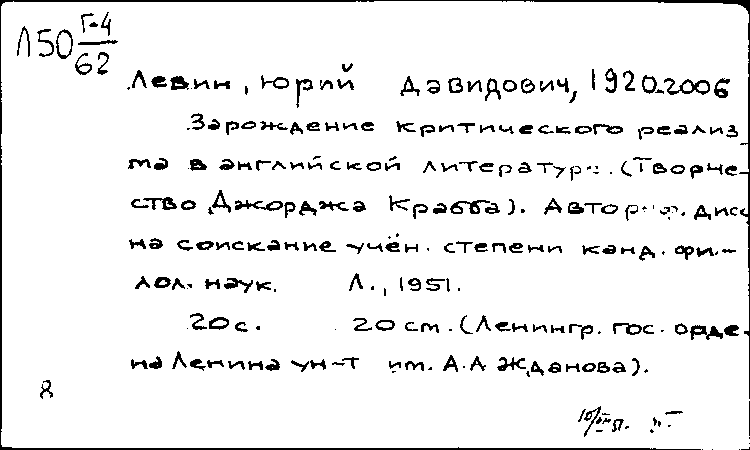 Л50 Г-4/62
Левин, Юрий Давидович, 1920-2006
Зарождение критического реализ-
ма в английской литературе. (Творче-
ство Джорджа Крабба). Автореф. дисс.
на соискание учён. степени канд. фи-
лол. наук. Л., 1951.
20 с. 20 см. (Ленингр. гос. орде-
на Ленина ун-т им. А.А Жданова).
8